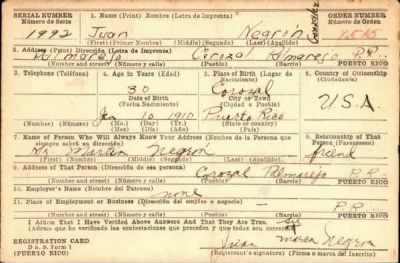 SERIAL NUMBER 1. NAME (Print) Nombre (Letra de Imprenta) ORDER NUMBER
Número de Serie Número de Orden
1992 Juan Negrón
(First) (Primer Nombre) (Middle) (Segundo) (Last) (Apellido)
2. ADDRESS (Print) Dirección (Letra de Imprenta)
Palmarejo Corozal Palmarejo P.R.
(Number and street) (Número y calle) (Town) (Pueblo) PUERTO RICO
3. Telephone (Teléfono) 4. Age in Years (Edad) 5. Place of Birth (Lugar de Nacimiento) 6. Country of Citizenship (Ciudadanía)
30 Corozal
Date of Birth City or Town
(Fecha Nacimiento) (Ciudad o Pueblo) U.S.A.
10 1910 Puerto Rico
(Number) (Número) (Mo.) (Day) (Yr.) (State or country) (Estado o país)
7. Name of Person Who Will Always Know Your Address (Nombre de la Persona que siempre sabrá su dirección) 8. Relationship of That Person (Parentesco)
Mr. Martin Negron friend
(First) (Middle) (Segundo) (Last) (Apellido)
9. Address of That Person (Dirección de esa persona)
Corozal Palmarejo P.R.
(Number and street) (Número y calle) (Town) (Pueblo) PUERTO RICO
10. Employer's Name (Nombre del Patrono)
none
11. Place of Employment or Business (Dirección del empleo o negocio)
P.R.
(Number and street) (Número y calle) (Town) (Pueblo) PUERTO RICO
I Affirm That I Have Verified Above Answers And That They Are True.
(Afirmo que he verificado las contestaciones que preceden y que todas son ciertas)
REGISTRATION CARD
D. s. S. Form 1 Juan Negron
(PUERTO RICO) (Registrant's signature) (Firma o marca del Inscrito)